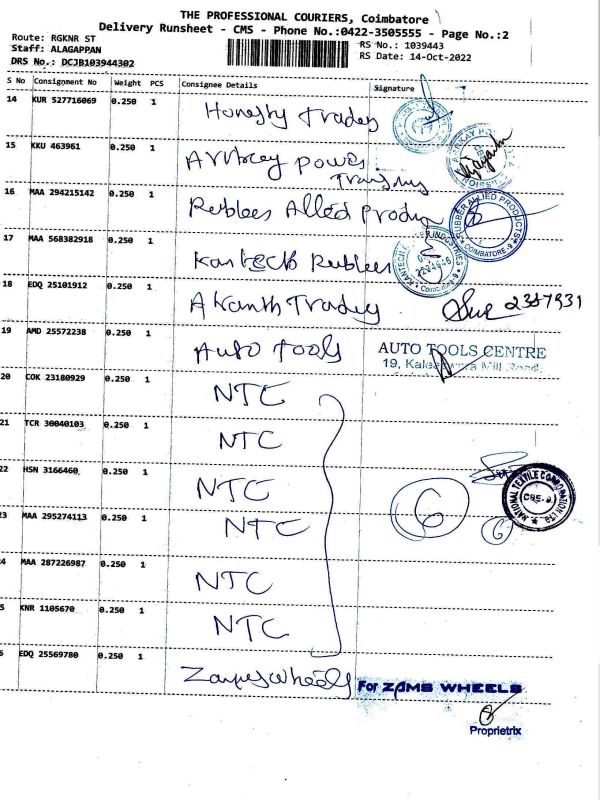 THE PROFESSIONAL COURIERS, Coimbatore
Delivery Runsheet - CMS - Phone No.:0422-3505555 - Page No.:2
Route: RGKNR ST
Staff: ALAGAPPAN
DRS No.: DCJB103944302
RS No.: 1039443
RS Date: 14-Oct-2022
S No Consignment No Weight PCS Consignee Details Signature
14 KUR 527716069 0.250 1 Honesty Trades
15 KKU 463961 0.250 1 Power
16 MAA 294215142 0.250 1 Rubbees Allied Produ
RUBBER ALLIED PRODUCTS COIMBATORE-9
17 MAA 568382918 0.250 1 Kantech Rubbees
18 EDQ 25101912 0.250 1 A Kanth Trades 2357931
19 AMD 25572238 0.250 1 Auto Tools AUTO TOOLS CENTRE
19, Mill Road
20 COK 23180929 0.250 1 NTC
21 TCR 30040103 0.250 1 NTC
22 HSN 3166460 0.250 1 NTC
NATIONAL TEXTILE CORPORATION LTD CBE-9
3 MAA 295274113 0.250 1 NTC 6 6
4 MAA 287226987 0.250 1 NTC
5 KNR 1105670 0.250 1 NTC
6 EDQ 25569780 0.250 1 Wheels For ZAMS WHEELS
Proprietrix